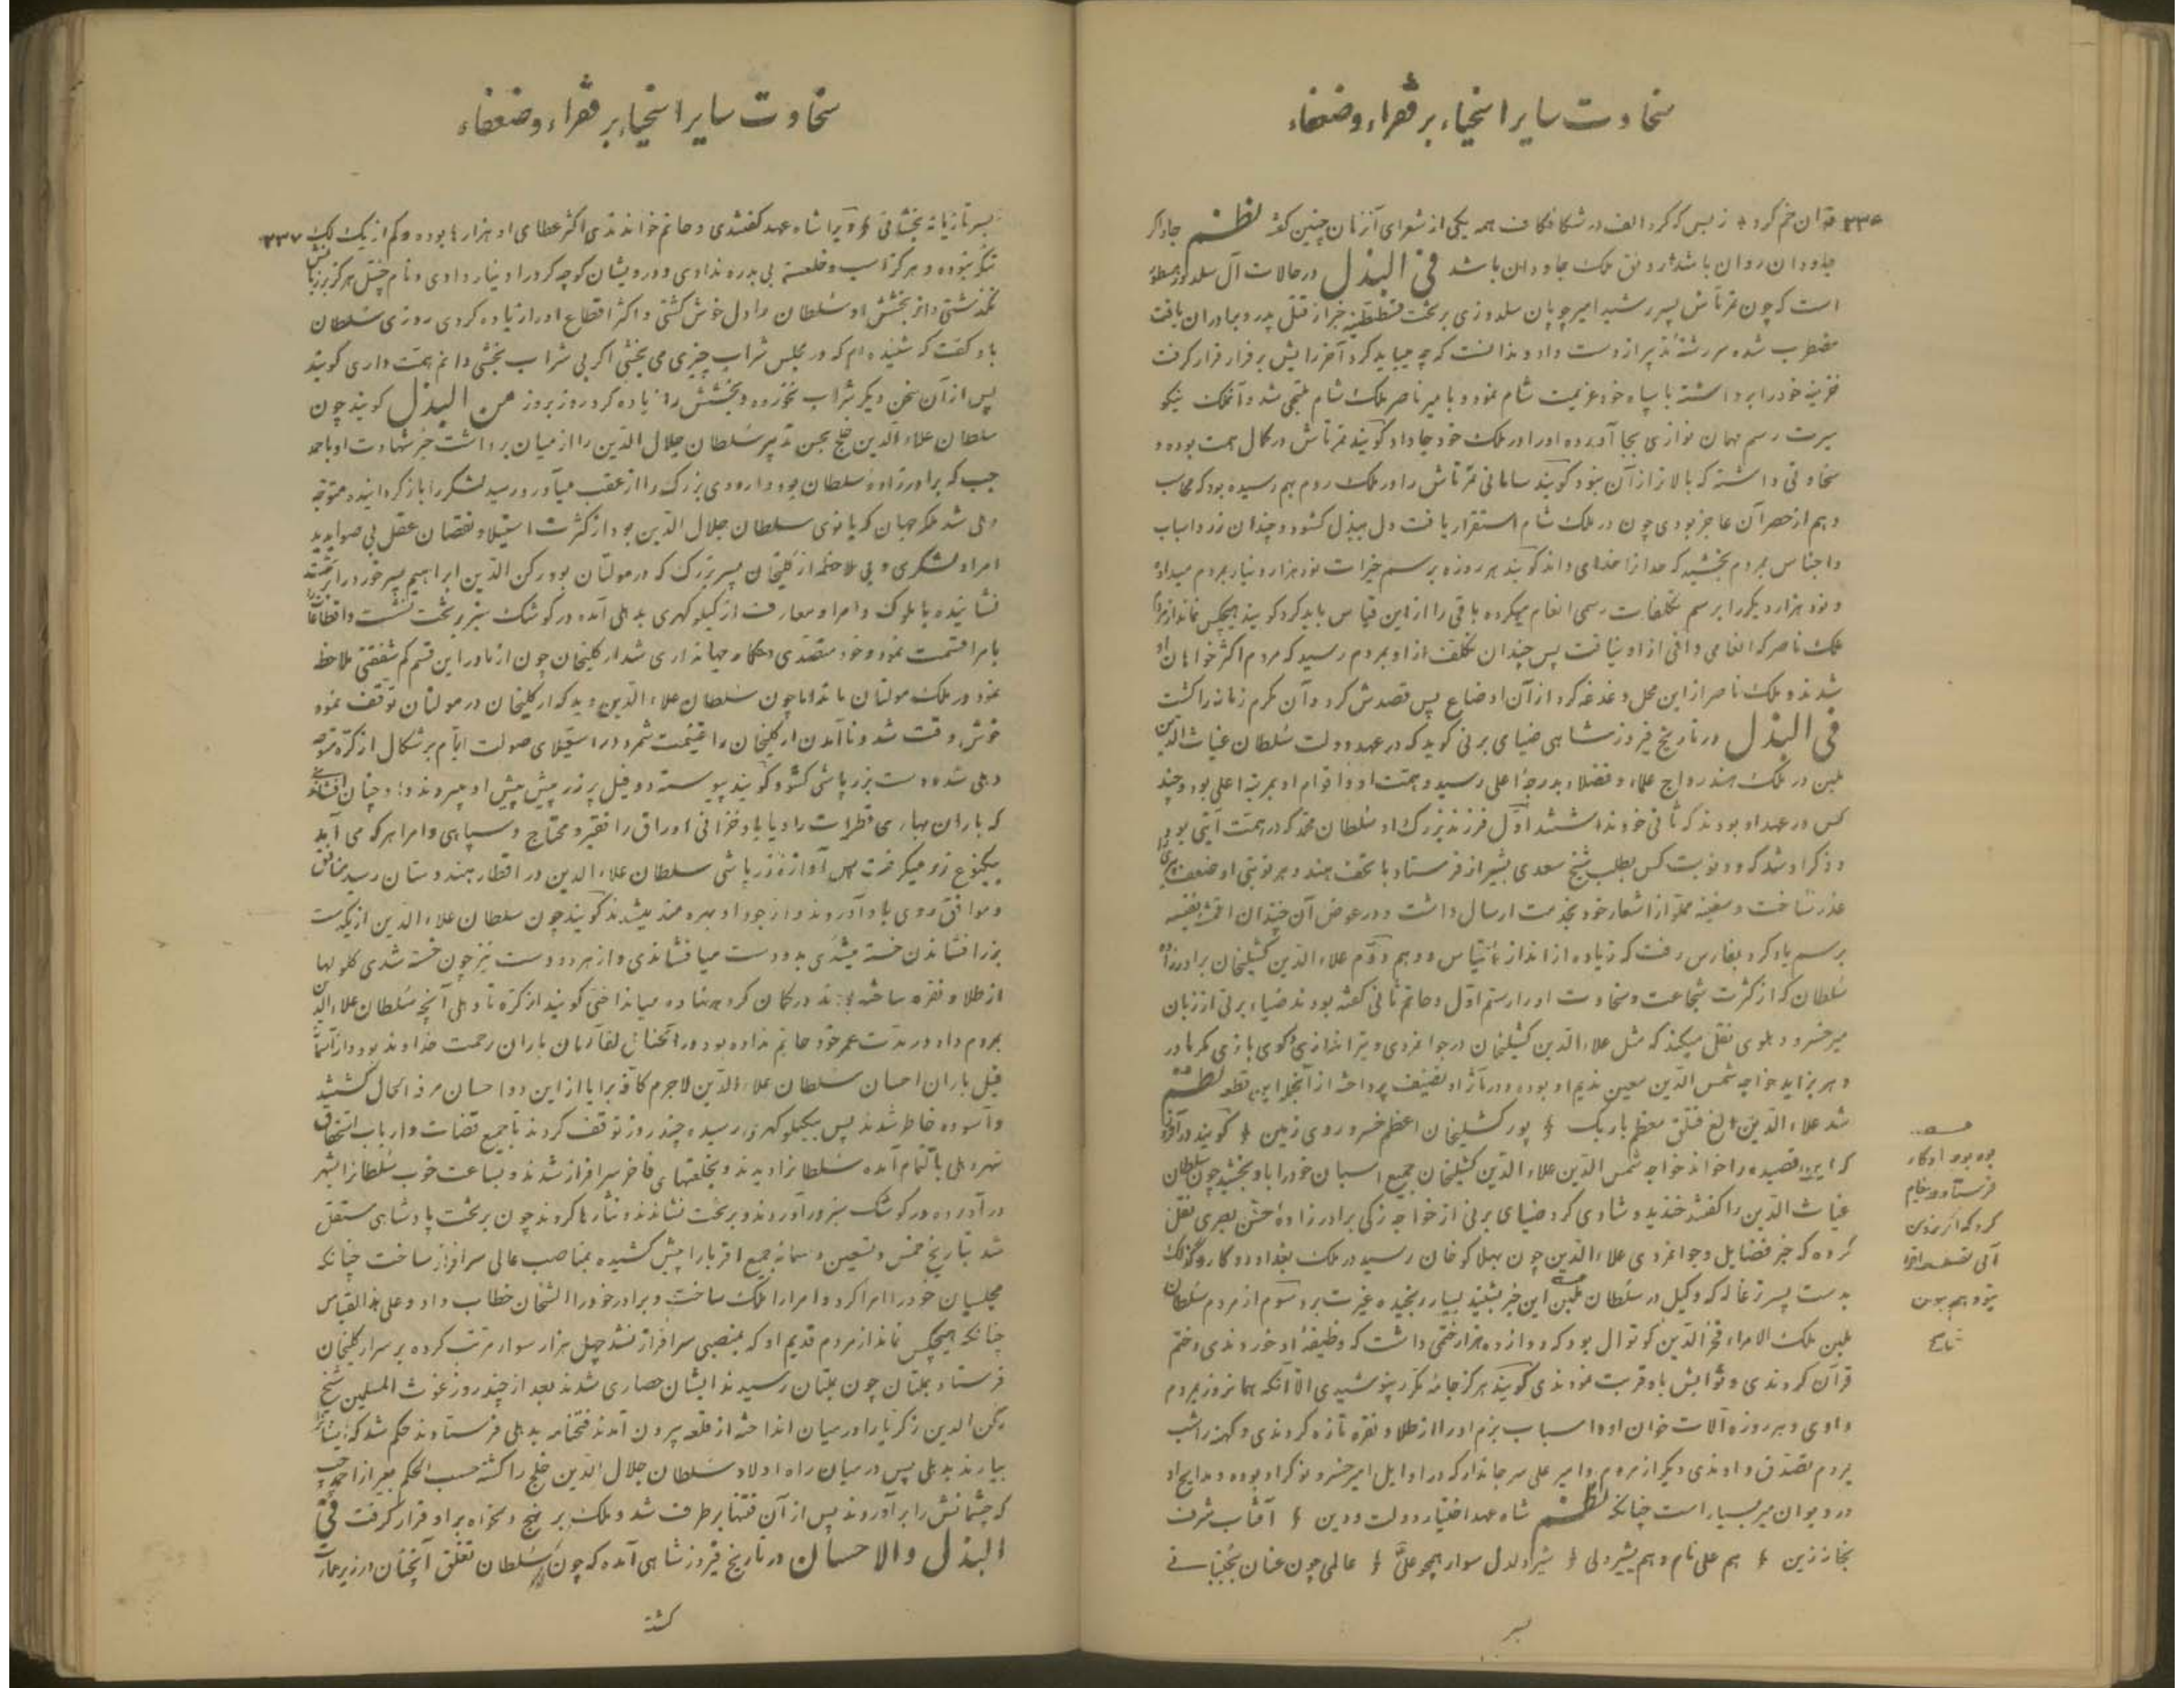 سخاوت سایر اسخیاء بر فقراء وضعفاء
۲۳۶
قد آن خم کرد زبس که کرد الف در شکاف کاف همه یکی از شعرای آنزمان چنین گفته نظم
جاودان روان باشد رونق ملک جاودان باشد فی البذل در حالات آل سلدوز مسطور
است که چون تمرتاش پسر رشید امیر چوپان سلدوزی بر تخت قسطنطنیه خبر از قتل پدر و برادران یافت
مضطرب شده سر رشته تدبیر از دست داد و ندانست که چه میباید کرد آخر رایش بر فرار قرار گرفت
خزینه خود را برداشته با سپاه خود عزیمت شام نمود و با میر ناصر ملک شام ملتجی شد و آنملک نیکو
سیرت رسم مهمان نوازی بجا آورده او را در ملک خود جا داد گویند تمرتاش در کمال همت بوده و
سخاوتی داشته که بالاتر از آن نبود گویند سامانی تمرتاش را در ملک روم بهم رسیده بود که محاسب
وهم از حصر آن عاجز بودی چون در ملک شام استقرار یافت دل ببذل گشود و چندان زر و اسباب
و اجناس بمردم بخشید که خدا داند گویند هر روزه برسم خیرات نود هزار دینار بمردم میداد
و نود هزار دیگر را برسم تکلفات رسمی انعام میکرده باقی را از این قیاس باید کرد گویند هیچکس نماند از مردم
ملک ناصر که انعامی وافی از او نیافت پس چندان تکلف از او بمردم رسید که مردم اکثر خواهان او
شدند و ملک ناصر از این محل دغدغه کرد از آن اوضاع پس قصدش کرد و آن مکرم زمانه را کشت
فی البذل در تاریخ فیروز شاهی ضیای برنی گوید که در عهد دولت سلطان غیاث الدین
بلبن در ملک هند رواج علماء و فضلاء بدرجه اعلی رسید و همت او و اقوام او بمرتبه اعلی بود و چند
کس در عهد او بودند که ثانی خود نداشتند اول فرزند بزرگ او سلطان محمد که در همت آیتی بود
و ذکر او شد که دو نوبت کس بطلب شیخ سعدی بشیراز فرستاد با تحف هند و هر نوبتی او ضعف پیری را
عذر ساخت و سفینه مملو از اشعار خود بخدمت ارسال داشت و در عوض آن چندان اقمشه نفیسه
برسم یاد کرد بفارس رفت که زیاده از اندازه قیاس و وهم دوم علاء الدین کشیلخان برادرزاده
سلطان که از کثرت شجاعت و سخاوت او را رستم اول و حاتم ثانی گفته بودند ضیاء برنی از زبان
میر خسرو دهلوی نقل میکند که مثل علاء الدین کشیلخان در جوانمردی و تیر اندازی و گوی بازی کم مادر
دهر بزاید خواجه شمس الدین معین ندیم او بوده و در مآثر او تصنیف پرداخته از آنجمله این قطعه نظم
شد علاء الدین الغ قتلغ معظم باربک پور کشیلخان اعظم خسرو روی زمین گویند در آنروز
که این قصیده را خواند خواجه شمس الدین علاء الدین کشیلخان جمیع اسبان خود را باو بخشید چون سلطان
غیاث الدین را گفتند خندید و شادی کرد ضیای برنی از خواجه زکی برادرزاده حسن بصری نقل
کرده که خبر فضایل و جوانمردی علاء الدین چون بهلاکوخان رسید در ملک بغداد دو کارد گزلک
بدست پسر ترغاله که وکیل در سلطان بلبن این خبر بشنید بسیار رنجیده غیرت برد سوم از مردم سلطان
بلبن ملک الامراء فخر الدین کوتوال بود که دوازده هزار ختمی داشت که وظیفه او خوردندی و ختم
قرآن کردندی و ثوابش باو قربت نمودندی گویند هرگز جامه مکرر نپوشیدی الا آنکه همانروز بمردم
دادی و هر روزه آلات خوان او و اسباب بزم او را از طلا و نقره تازه کردندی و کهنه را شب
بمردم تصدق دادندی دیگر از مردم او میر علی سرجاندار که در اوایل امیر خسرو نوکر او بوده و مدایح او
در دیوان میر بسیار است چنانکه نظم شاه عهد اختیار دولت و دین آفتاب شرف
بخانه زین هم علی نام و هم بشیر دلی شیر و دلدل سوار همچو علی عالمی چون عنان بجنبانی
سخاوت سایر اسخیاء بر فقراء وضعفاء
۲۳۷
بسر تازیانه بخشانی ویرا شاه عهد گفتندی و حاتم خواندندی اکثر عطای او هزارها بوده و کم از یک لک
تنکه نبوده و هرگز اسب و خلعت بی بدره ندادی و درویشان کوچه گرد را دینار دادی و نام چیتل هرگز بر زبانش
نگذشتی و از بخشش او سلطان را دل خوش گشتی و اکثر اقطاع او را زیاده کردی روزی سلطان
باو گفت که شنیده ام که در مجلس شراب چیزی می بخشی اگر بی شراب بخشی دانم همت داری گویند
پس از آن سخن دیگر شراب نخورده و بخشش را زیاده کرد روز بروز من البذل گویند چون
سلطان علاء الدین خلج بحسن تدبیر سلطان جلال الدین را از میان برداشت خبر شهادت او باحمد
چپ که برادرزاده سلطان بود و اردوی بزرگ را از عقب میآورد رسید لشکر را باز گردانیده متوجه
دهلی شد ملکه جهان که بانوی سلطان جلال الدین بود از کثرت استیلا و نقصان عقل بی صوابدید
امراء لشکری و بی ملاحظه ارکلیخان پسر بزرگ که در مولتان بود رکن الدین ابراهیم پسر خورد را بر تخت
نشانیده با ملوک و امرا و معارف از کیلو کهری بدهلی آمده در کوشک سبز بر تخت نشست و اقطاعها را
بامرا قسمت نمود و خود متصدی احکام جهانداری شد ارکلیخان چون از مادر این قسم کم شفقتی ملاحظه
نمود در ملک مولتان ماند اما چون سلطان علاء الدین دید که ارکلیخان در مولتان توقف نمود
خوش وقت شد و نا آمدن ارکلیخان را غنیمت شمرد و در استیلای صولت ایام برشکال از کره متوجه
دهلی شده دست بزر پاشی گشود گویند پیوسته دو فیل پر زر پیش پیش او میبردند و چنان افشاندی
که باران بهاری قطرات را و یا باد خزانی اوراق را فقیر و محتاج و سپاهی و امرا هر که می آمد
بیکنوع زر میگرفت پس آوازه زر پاشی سلطان علاء الدین در اقطار هندوستان رسید منافق
و موافق روی باو آوردند و از جود او بهره مند میشدند گویند چون سلطان علاء الدین از یکدست
بزر افشاندن خسته میشدی بدو دست میافشاندی و از هر دو دست نیز چون خسته شدی گلولها
از طلا و نقره ساخته بودند در کمان گروهه نهاده میانداختی گویند از کره تا دهلی آنچه سلطان علاء الدین
بمردم داد در مدت عمر خود حاتم نداده بود در آنحال لقا آرمان باران رحمت خداوند بود و از آسمان
فیل باران احسان سلطان علاء الدین لاجرم کافه برایا از این دو احسان مرفه الحال گشتند
و آسوده خاطر شدند پس بکیلو کهری رسیده چند روز توقف کردند تا جمیع قضات و ارباب استحقاق
شهر دهلی بالتمام آمده سلطانرا دیدند و بخلعتهای فاخر سرافراز شدند و بساعت خوب سلطانرا بشهر
در آورده در کوشک سبز ورآوردند و بر تخت نشاندند و نثارها کردند چون بر تخت پادشاهی مستقل
شد بتاریخ خمس و تسعین و ستمائه جمیع اقربا را پیش کشیده بمناصب عالی سرافراز ساخت چنانکه
مجلسیان خود را امرا کرد و امرا را ملک ساخت و برادر خود را الغخان خطاب داد و علی هذا القیاس
چنانکه هیچکس نماند از مردم قدیم او که بمنصبی سرافراز نشد چهل هزار سوار مرتب کرده بر سر ارکلیخان
فرستاد بملتان چون بملتان رسیدند ایشان حصاری شدند بعد از چند روز غوث المسلمین شیخ
رکن الدین زکریا را در میان انداخته از قلعه بیرون آمدند فتحنامه بدهلی فرستادند حکم شد که ایشانرا
بیارند بدهلی پس در میان راه اولاد سلطان جلال الدین خلج را کشته حسب الحکم بغیر از احمد چپ
که چشمانش را برآوردند پس از آن فتنها بر طرف شد و ملک بر نهج دلخواه بر او قرار گرفت فی
البذل والاحسان در تاریخ فیروز شاهی آمده که چون سلطان تغلق آنچنان در زیر عمارت
کشته